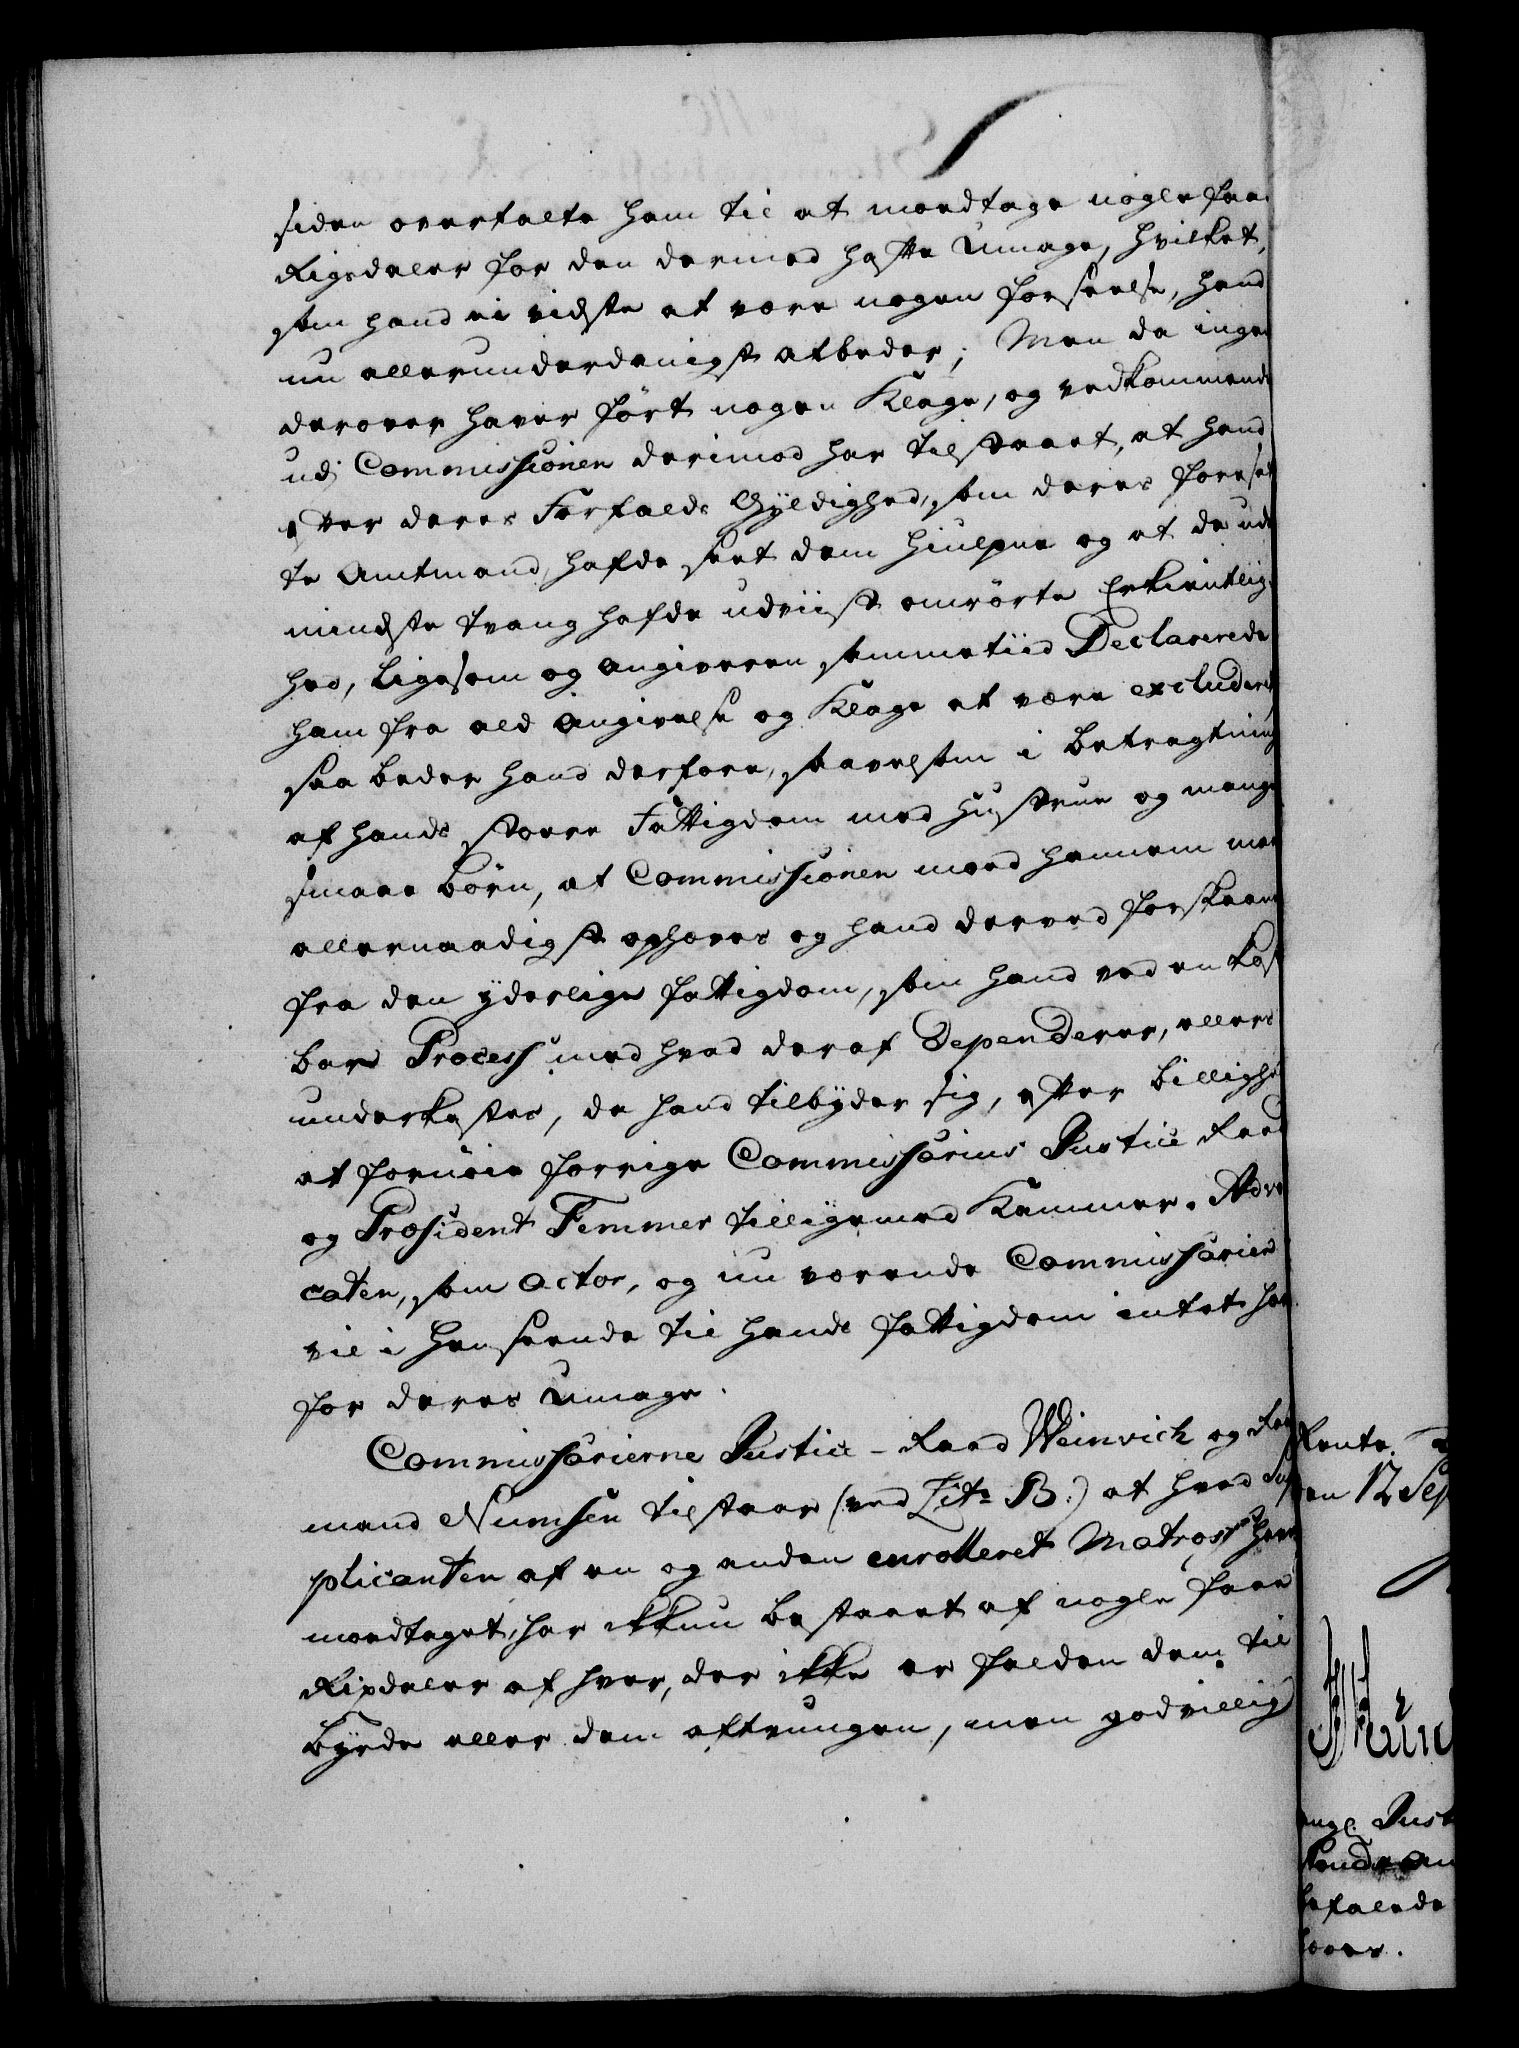 siden overtalte ham til at modtage nogle faa
Rigsdaler for den dermed hafte Umage, hvilket,
som hand ei vidste at være nogen forseelse, hand
nu allerunderdanigst afbeder; Men da ingen
derover haver ført nogen Klage, og vedkommende
udj Commissionen derimod har tilstaaet, at hand
efter deres Forfalds Gyldighed, som deres foresat
te Amtmand, hafde seet dem hiulpne og at de uden
mindste tvang hafde udviist omrørte Erkientlig-
hed, ligesom og Angiveren sammetiid Declarerede
ham fra ald Angivelse og Klage at være excluderet,
saa beder hand derfore, saavelsom i betragtning
af hands store Fattigdom med hustrue og mange
smaae børn, at Commissionen moed hannem maa
allernaadigst ophæves og hand derved forskaanes
fra den yderlige fattigdom, som hand ved en kost
bar Process med hvad deraf Dependerer, ellers
underkastes, da hand tilbyder sig, efter billighed
at fornøie forrige Commissarius Justice Raad
og Præsident Femmer tilligemed Kammer-Advo
caten, som Actor, og nu værende Commissarier
vil i henseende til hands fattigdom intet have
for deres Umage.
Commissarierne Justice-Raad Weinvich og
mand Numsen tilstaar (ved Litr. B.) at hvad Sup
plicanten af en og anden enrolleret Matros
modtaget, har ikkun bestaaet af nogle faae
Rixdaler af hver, der ikke er falden dem til
byrde eller dem aftvungen, men godvillig
Rente
en 12 Sep
Just
befalede